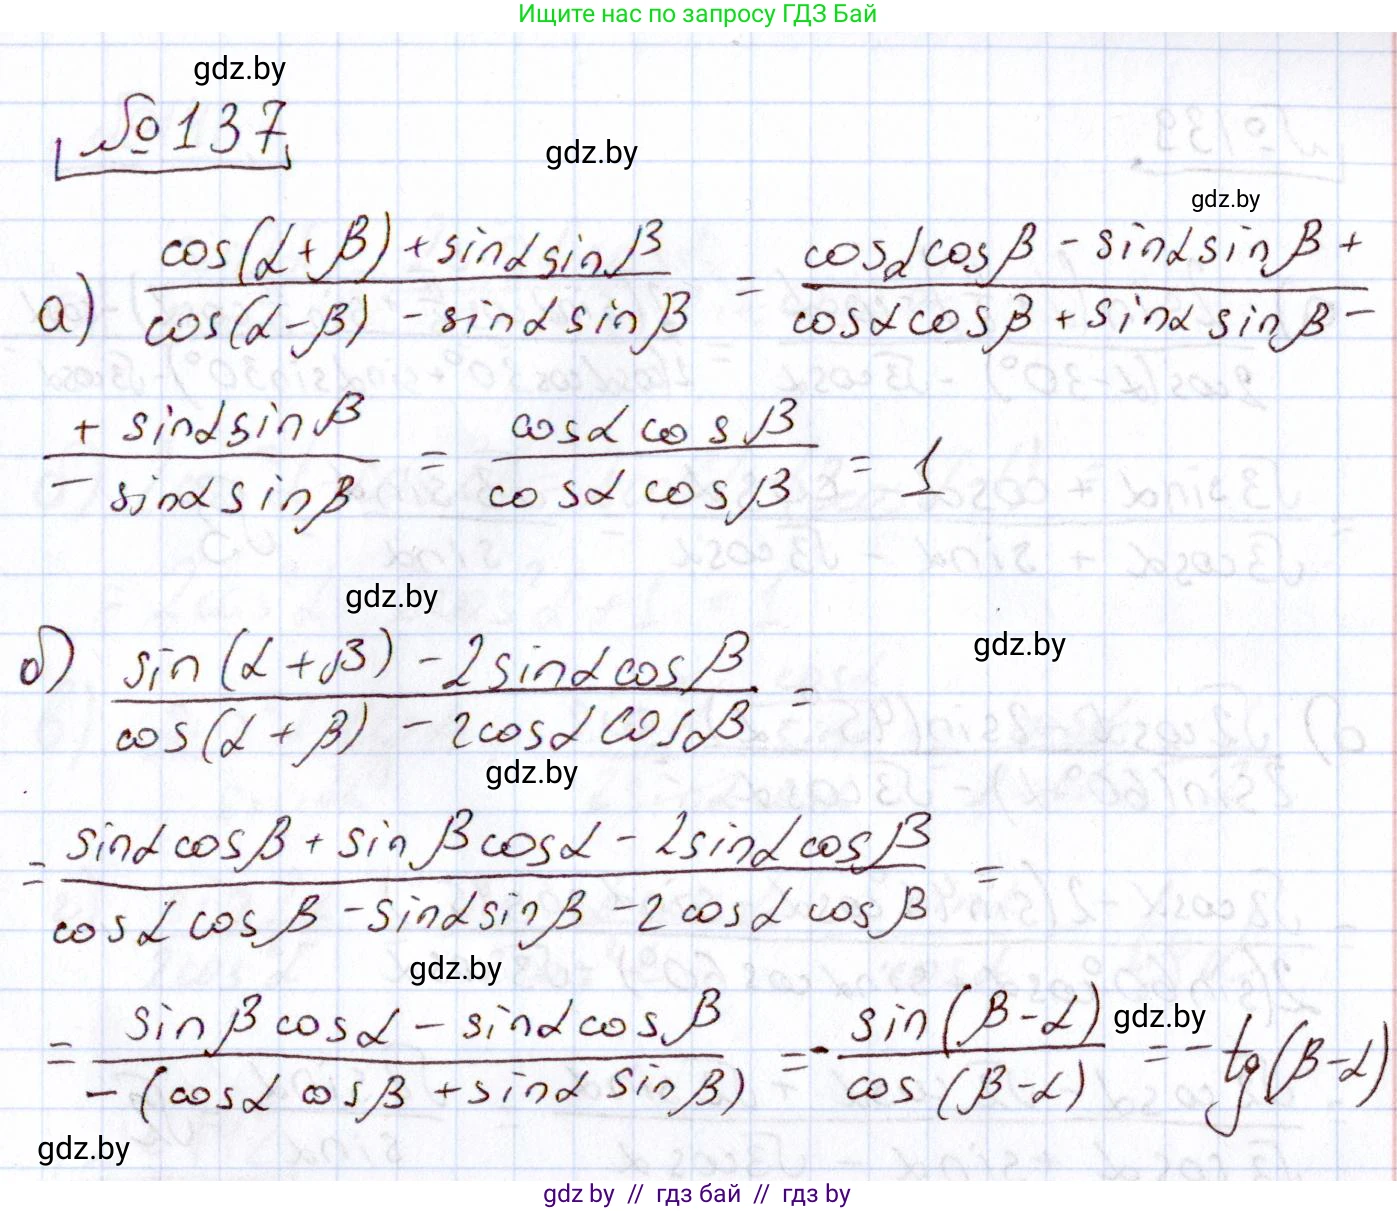 Ищите нас по запросу ГДЗ Бай
gdz.by
№137
gdz.by
gdz.by
а) (cos(α+β) + sinα sinβ) / (cos(α-β) - sinα sinβ) = (cosα cosβ - sinα sinβ +) / (cosα cosβ + sinα sinβ -)
(+ sinα sinβ) / (- sinα sinβ) = (cosα cosβ) / (cosα cosβ) = 1
gdz.by
gdz.by
б) (sin(α+β) - 2sinα cosβ) / (cos(α+β) - 2cosα cosβ) =
gdz.by
= (sinα cosβ + sinβ cosα - 2sinα cosβ) / (cosα cosβ - sinα sinβ - 2cosα cosβ) =
gdz.by
= (sinβ cosα - sinα cosβ) / (-(cosα cosβ + sinα sinβ)) = - sin(β-α) / cos(β-α) = - tg(β-α)
gdz.by
gdz.by
gdz by // гдз бай // гдз by